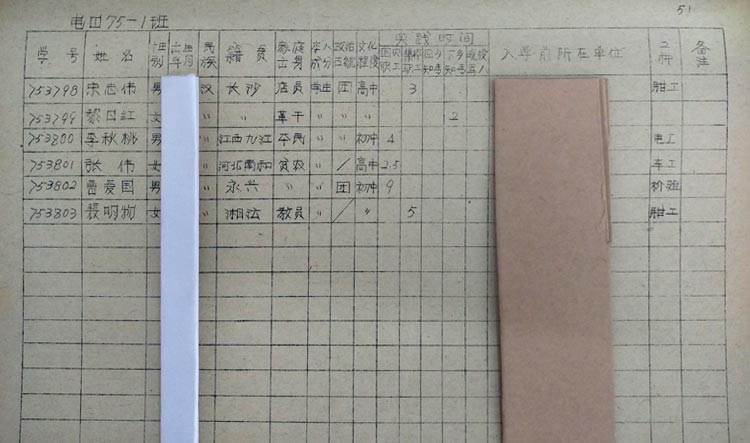 51
电四75-1班
学号 姓名 性别 出生年月 民族 籍贯 家庭出身 本人成分 政治面貌 文化程度 实践时间 入学前所在单位 工种 备注
职工 职工 回乡知青 下乡知青 军人
753798 宋志伟 男 汉 长沙 店员 学生 团 高中 3 钳工
753799 黎日红 女 〃 〃 革干 〃 〃 〃 2
753800 李秋桃 男 〃 江西九江 〃 〃 初中 4 电工
753801 张伟 女 〃 河北南和 贫农 〃 / 高中 2.5 车工
753802 曹爱国 男 〃 永兴 〃 〃 团 初中 9
753803 聂明物 女 〃 湘法 教员 〃 / 〃 5 钳工